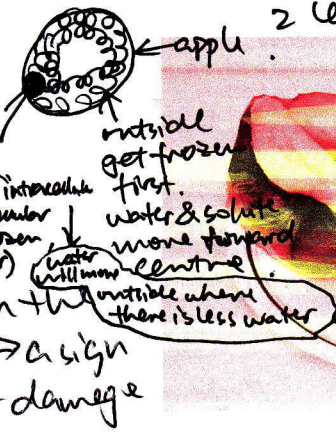 2
apple.
outside
get frozen
first.
water & solute
move forward
centre.
water
will move
outside where
there is less water
→ a sign
damage